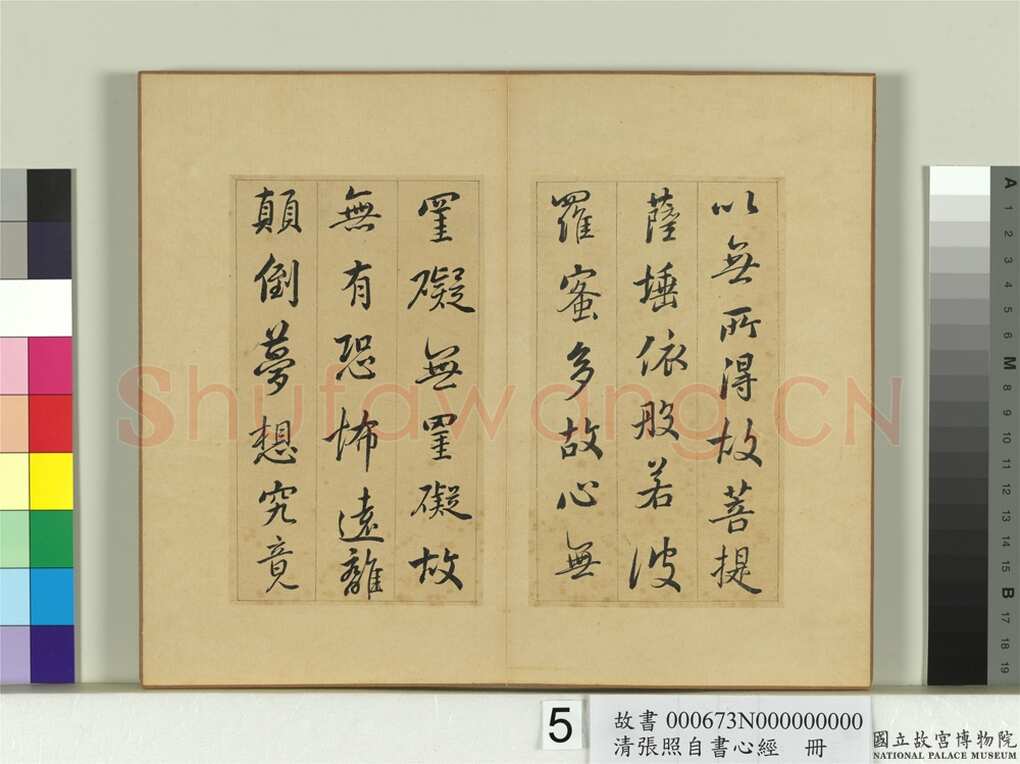 以無所得故菩提
薩埵依般若波
羅蜜多故心無
罣礙無罣礙故
無有恐怖遠離
顛倒夢想究竟
Shufawang.CN
A 1 2 3 4 5 6 M 8 9 10 11 12 13 14 15 B 17 18 19
5
故書 000673N000000000
清張照自書心經 冊
國立故宮博物院
NATIONAL PALACE MUSEUM